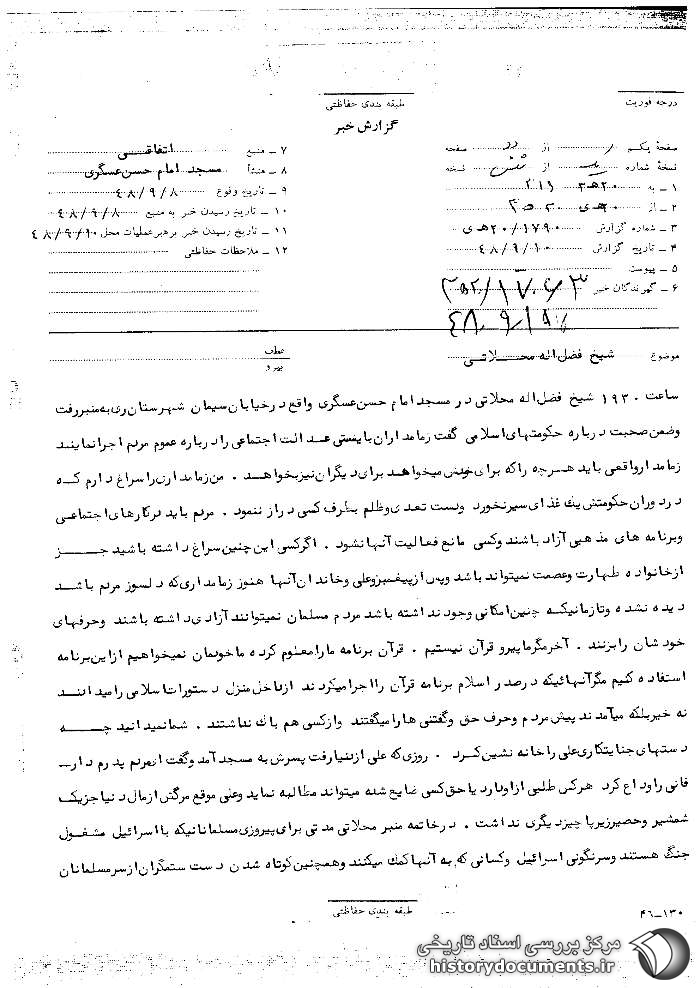 درجه فوریت
طبقه بندی حفاظتی
گزارش خبر
صفحهٔ یکم از دو صفحه
نسخهٔ شماره یک از شش نسخه
۱ ـ به ۲۰ هـ ۳ ۳۱۶
۲ ـ از ۲۰ هـ ی
۳ ـ شماره گزارش ۲۰/۱۷۹۰ هـ ی
۴ ـ تاریخ گزارش ۴۸/۹/۱۰
۵ ـ پیوست
۶ ـ گیرندگان خبر
۷ ـ منبع اتفاقی
۸ ـ منشأ مسجد امام حسن عسگری
۹ ـ تاریخ وقوع ۴۸/۹/۸
۱۰ ـ تاریخ رسیدن خبر به منبع ۴۸/۹/۸
۱۱ ـ تاریخ رسیدن خبر برهبر عملیات محل ۴۸/۹/۱۰
۱۲ ـ ملاحظات حفاظتی
موضوع شیخ فضل اله محلاتی
عطف
پیرو
ساعت ۱۹۳۰ شیخ فضل اله محلاتی در مسجد امام حسن عسگری واقع در خیابان سیمان شهرستان ری به منبر رفت
وضمن صحبت درباره حکومتهای اسلامی گفت زمامداران بایستی عدالت اجتماعی را درباره عموم مردم اجرا نمایند
زمامدار واقعی باید هرچه را که برای خودش میخواهد برای دیگران نیز بخواهد . من زمامداری را سراغ دارم که
در دوران حکومتش یک غذای سیر نخورد ودست تعدی وظلم بطرف کسی دراز ننمود . مردم باید در کارهای اجتماعی
وبرنامه های مذهبی آزاد باشند وکسی مانع فعالیت آنها نشود . اگر کسی این چنین سراغ داشته باشید جز
از خانواده طهارت وعصمت نمیتواند باشد وپس از پیغمبر وعلی وخاندان آنها هنوز زمامداری که دلسوز مردم باشد
دیده نشده وتا زمانیکه چنین امکانی وجود نداشته باشد مردم مسلمان نمیتوانند آزادی داشته باشند وحرفهای
خودشان را بزنند . آخر مگر ما پیرو قرآن نیستیم . قرآن برنامه ما را معلوم کرده ما خودمان نمیخواهیم از این برنامه
استفاده کنیم مگر آنهائیکه در صدر اسلام برنامه قرآن را اجرا میکردند از داخل منزل دستورات اسلامی را میدادند
نه خیر بلکه میآمدند پیش مردم وحرف حق وگفتنی ها را میگفتند واز کسی هم باک نداشتند . شما نمیدانید چه
دستهای جنایتکاری علی را خانه نشین کرد . روزی که علی از دنیا رفت پسرش به مسجد آمد وگفت ایمردم پدرم دار
فانی را وداع کرد هرکس طلبی از او دارد یا حق کسی ضایع شده میتواند مطالبه نماید وعلی موقع مرگش از مال دنیا جز یک
شمشیر وحصیر زیر پا چیز دیگری نداشت . در خاتمه منبر محلاتی مدتی برای پیروزی مسلمانانیکه با اسرائیل مشغول
جنگ هستند وسرنگونی اسرائیل وکسانی که به آنها کمک میکنند وهمچنین کوتاه شدن دست ستمگران از سر مسلمانان
طبقه بندی حفاظتی
۴۶ـ۱۳۰
مرکز بررسی اسناد تاریخی
historydocuments.ir